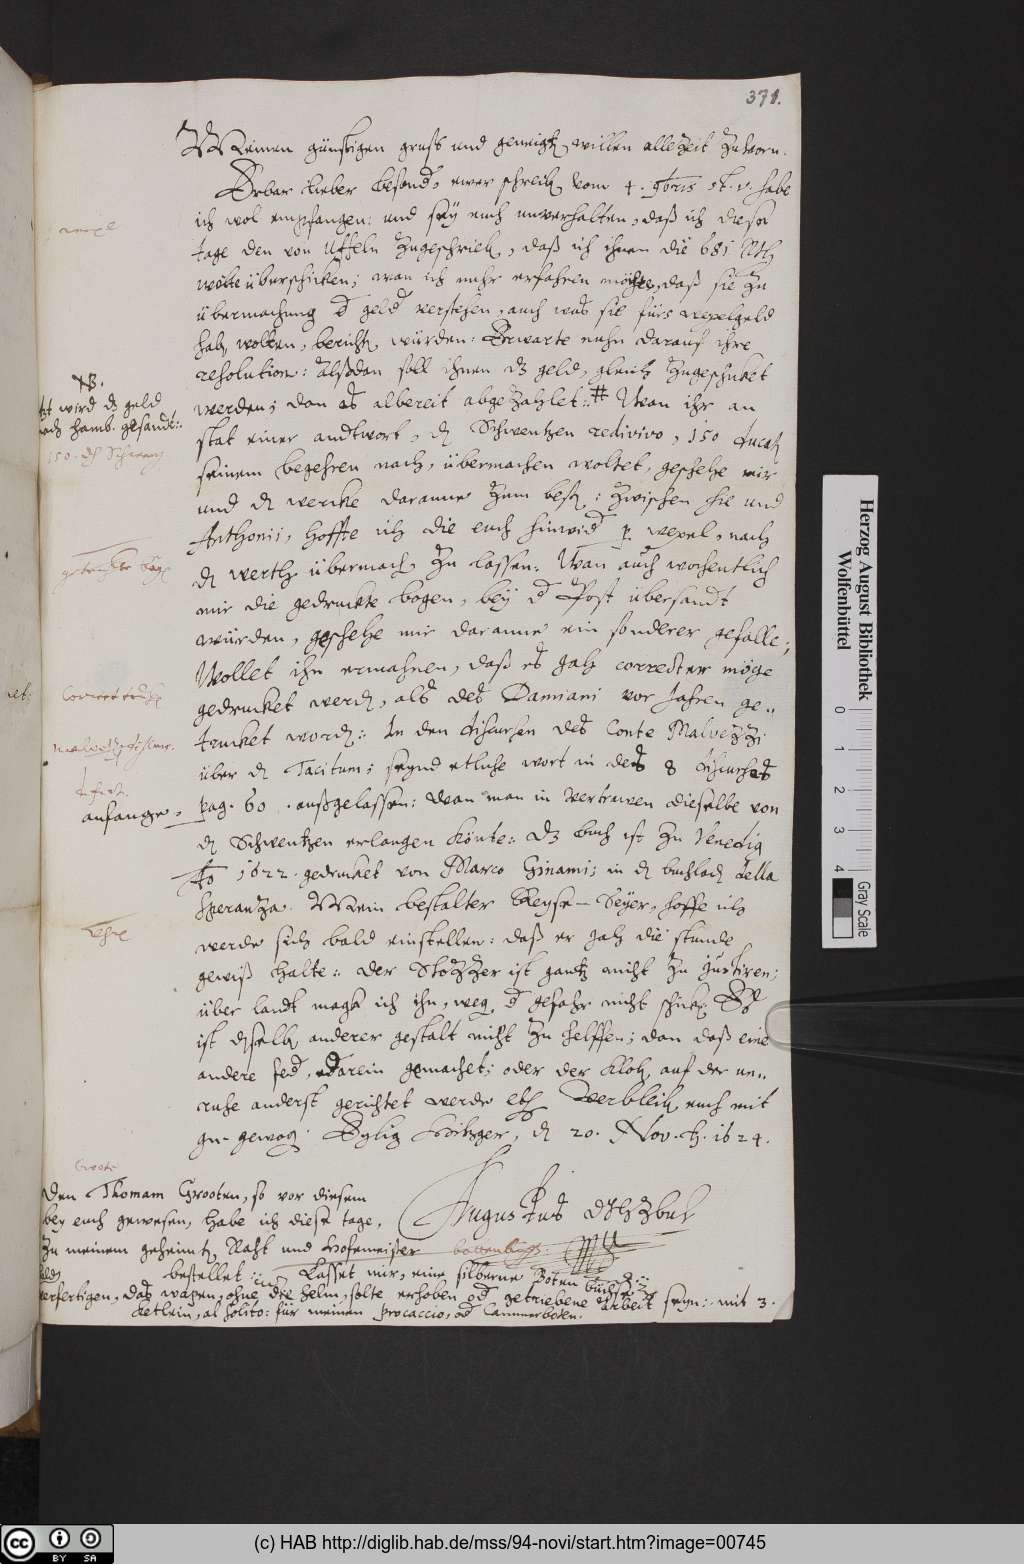 371.
Meinen günstigen gruß und geneigtn willen allezeit zuvorn.
Erbar lieber besonder, ewer schreibn vom 4. 9bris st. v. habe
ich wol empfangen: und sey euch unverhalten, daß ich dieser
tage den von Uffeln zugeschrieben, daß ich ihnen die 681. Rth
wolte überschicken; wan ich mehr erfahren möchte, daß sie zu
übermachung d geld verstehen, auch was sie fürs wexelgeld
habn wollen, berichtn würden: Erwarte nuhn darauf ihre
resolution: Alßdan soll ihnen dz geld, gleich zugeschicket
werden; dan es albereit abgezahlet:. # Wan ihr an
NB.
itzt wird dz geld
nach Hamb. gesandt:.
stat einer andtwort, dn Schwentzen redivivo, 150 ducatn
150. dn Schwentz.
seinem begehren nach, übermachen woltet, geschehe mir
und dn wercke daranne zum bestn: Zwischen hie und
Anthonii, hoffte ich die euch hinwid p. wexel, nach
dn werth übermachn zu lassen. Wan auch wochentlich
mir die gedruckte bogen, bey d Post übersandt
würden, geschehe mir daranne ein sonderer gefalle;
Wollet ihn ermahnen, daß es ja correcter möge
gedrucket werdn, als des Damiani vor Jahren ge,,
trucket wordn: In den discursen des Conte Malvezzi
über dn Tacitum; seynd etliche wort in des 8 discurses
anfange, pag. 60. außgelassen: Wan man in vertrawen dieselbe von
dn Schwentzen erlangen könte: Dz buch ist zu Venedig
Ao 1622. gedrucket von Marco Ginami; in dn buchladn della
Speranza. Mein bestalter Reyse-Seyer, hoffe ich
werde sich bald einstellen: daß er ja die stunde
gewiß halte:. der Stozzer ist gantz nicht zu justiren;
über landt mag ich ihn, wegn d gefahr nicht schickn. So
ist dselbn anderer gestalt nicht zu helffen; dan daß eine
andere fed, darein gemachet; oder der klobn auf der un,,
ruhe anderst gerichtet werde etc. Verbleibn euch mit
gn. gewogn. Eylig Hitzger, dn 20. Nov. 1624.
Augustus DJHZBuL
Den Thomam Grooten, so vor diesem
bey euch gewesen, habe ich diese tage,
zu meinem geheimtn Raht und Hofemeister
bestellet:. Lasset mir, eine silberne Boten büchse
verfertigen, das wapen, ohne die helm, solte erhoben od getriebene arbeit seyn:. mit 3.
ketlein, al solito: für meinen procaccio, od Cammerboten.
Herzog August Bibliothek
Wolfenbüttel
0 1 2 3 4
Gray Scale
cc BY SA
(c) HAB http://diglib.hab.de/mss/94-novi/start.htm?image=00745